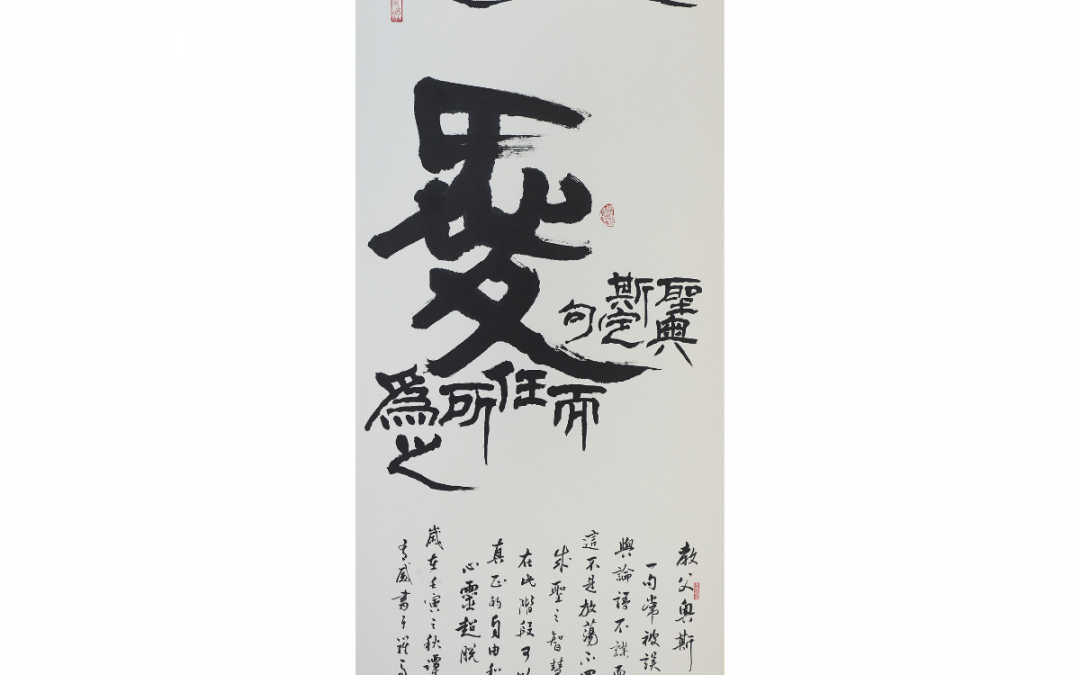 愛
聖奧
斯定
句
而任所為之
教父奧斯
一句常被誤
與論語不謀而
這不是放蕩不
成聖之智慧
在此階段可以
真正的自由和
心靈超脫
歲在壬寅之秋譚
書于羅